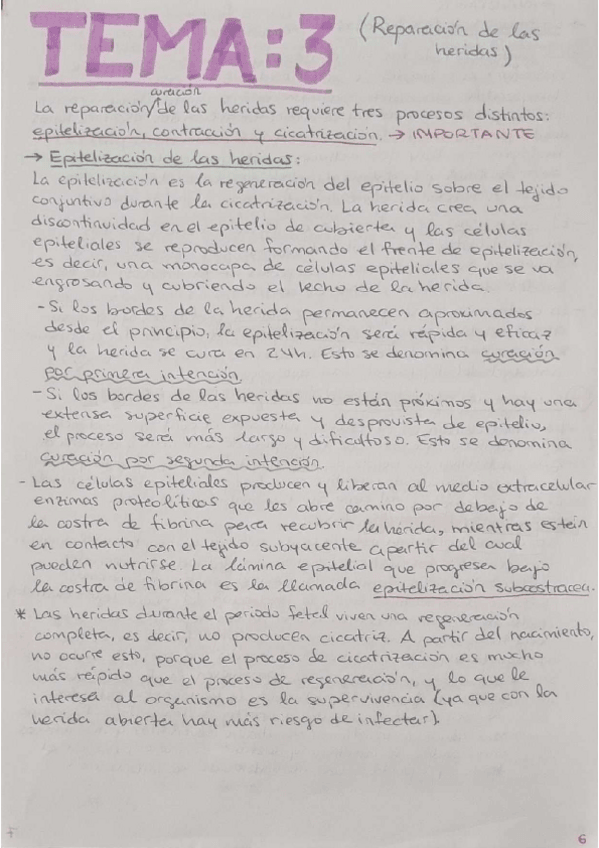 TEMA: 3 (Reparación de las
heridas)
curación
La reparación/de las heridas requiere tres procesos distintos:
epitelización, contracción y cicatrización. → IMPORTANTE
→ Epitelización de las heridas:
La epitelización es la regeneración del epitelio sobre el tejido
conjuntivo durante la cicatrización. La herida crea una
discontinuidad en el epitelio de cubierta y las células
epiteliales se reproducen formando el frente de epitelización,
es decir, una monocapa de células epiteliales que se va
engrosando y cubriendo el lecho de la herida.
- Si los bordes de la herida permanecen aproximados
desde el principio, la epitelización será rápida y eficaz
y la herida se cura en 24h. Esto se denomina curación
por primera intención.
- Si los bordes de las heridas no están próximos y hay una
extensa superficie expuesta y desprovista de epitelio,
el proceso será más largo y dificultoso. Esto se denomina
curación por segunda intención.
- Las células epiteliales producen y liberan al medio extracelular
enzimas proteolíticas que les abre camino por debajo de
la costra de fibrina para recubrir la herida, mientras estén
en contacto con el tejido subyacente a partir del cual
pueden nutrirse. La lámina epitelial que progresa bajo
la costra de fibrina es la llamada epitelización subcostracea.
* Las heridas durante el periodo fetal viven una regeneración
completa, es decir, no producen cicatriz. A partir del nacimiento,
no ocurre esto, porque el proceso de cicatrización es mucho
más rápido que el proceso de regeneración, y lo que le
interesa al organismo es la supervivencia (ya que con la
herida abierta hay más riesgo de infectar).
6